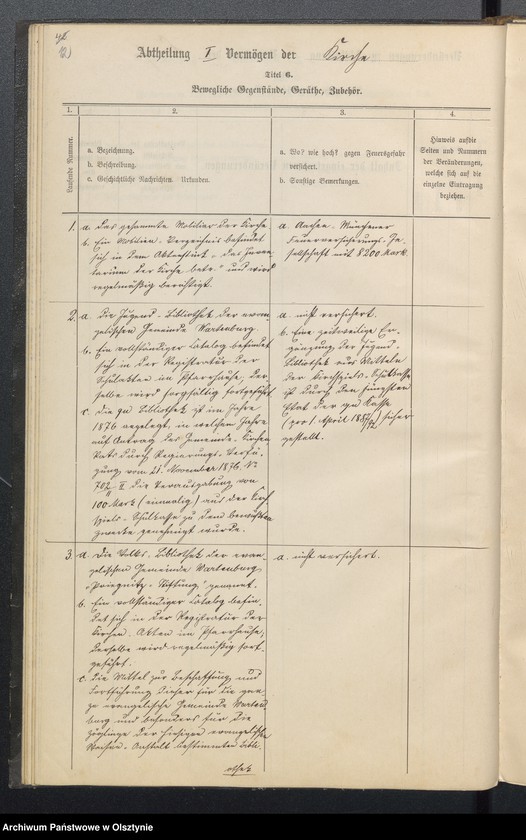 Abtheilung I Vermögen der Kirche
Titel 6.
Bewegliche Gegenstände, Geräthe, Zubehör.
1.
2.
3.
4.
Laufende Nummer.
a. Bezeichnung.
b. Beschreibung.
c. Geschichtliche Nachrichten. Urkunden.
a. Wo? wie hoch? gegen Feuersgefahr
versichert.
b. Sonstige Bemerkungen.
Hinweis auf die
Seiten und Nummern
der Veränderungen,
welche sich auf die
einzelne Eintragung
beziehen.
1. a. Das gesammte Mobiliar der Kirche
b. Ein Mobilien-Verzeichniß befindet
sich in dem Aktenstück „das Inven-
tarium der Kirche betr." und wird
regelmäßig berichtigt.
a. Aachen-Münchener
Feuerversicherungs-Ge-
sellschaft mit 8200 Mark.
2. a. Die Jugend-Bibliothek der evan-
gelischen Gemeinde Wartenburg.
b. Ein vollständiger Catalog befindet
sich in der Registratur der
Schulakten im Pfarrhause, der-
selbe wird sorgfältig fortgeführt
c. die qu. Bibliothek ist im Jahre
1876 angelegt, in welchem Jahre
auf Antrag des Gemeinde-Kirchen-
Raths durch Regierungs-Verfü-
gung vom 21. November 1876 No
702 II die Verausgabung von
100 Mark (einmalig) aus der Kirch-
spiels-Schulkasse zu dem bewußten
Zwecke genehmigt wurde.
a. nicht versichert.
b. Eine zeitweilige Er-
gänzung der Jugend-
Bibliothek aus Mitteln
der Kirchspiels-Schulkasse
ist durch den jüngsten
Etat der qu. Kasse
(pro 1 April 188 ) sicher
gestellt.
3. a. Die Volks-Bibliothek der evan-
gelischen Gemeinde Wartenburg
„ Stiftung" genannt.
b. Ein vollständiger Catalog befin-
det sich in der Registratur der
Kirchen-Akten im Pfarrhause,
derselbe wird regelmäßig fort-
geführt.
c. Die Mittel zur Beschaffung und
Fortführung dieser für die gan-
ze evangelische Gemeinde Warten-
burg und besonders für die
Zöglinge der hiesigen evangelischen
Waisen-Anstalt bestimmten Bibli-
othek
a. nicht versichert.
Archiwum Państwowe w Olsztynie